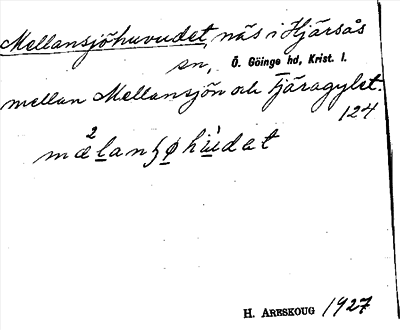 Mellansjöhuvudet, näs i Hjärsås
sn, Ö. Göinge hd, Krist. l.
mellan Mellansjön och Tjäragylet.
124
H. Areskoug 1927